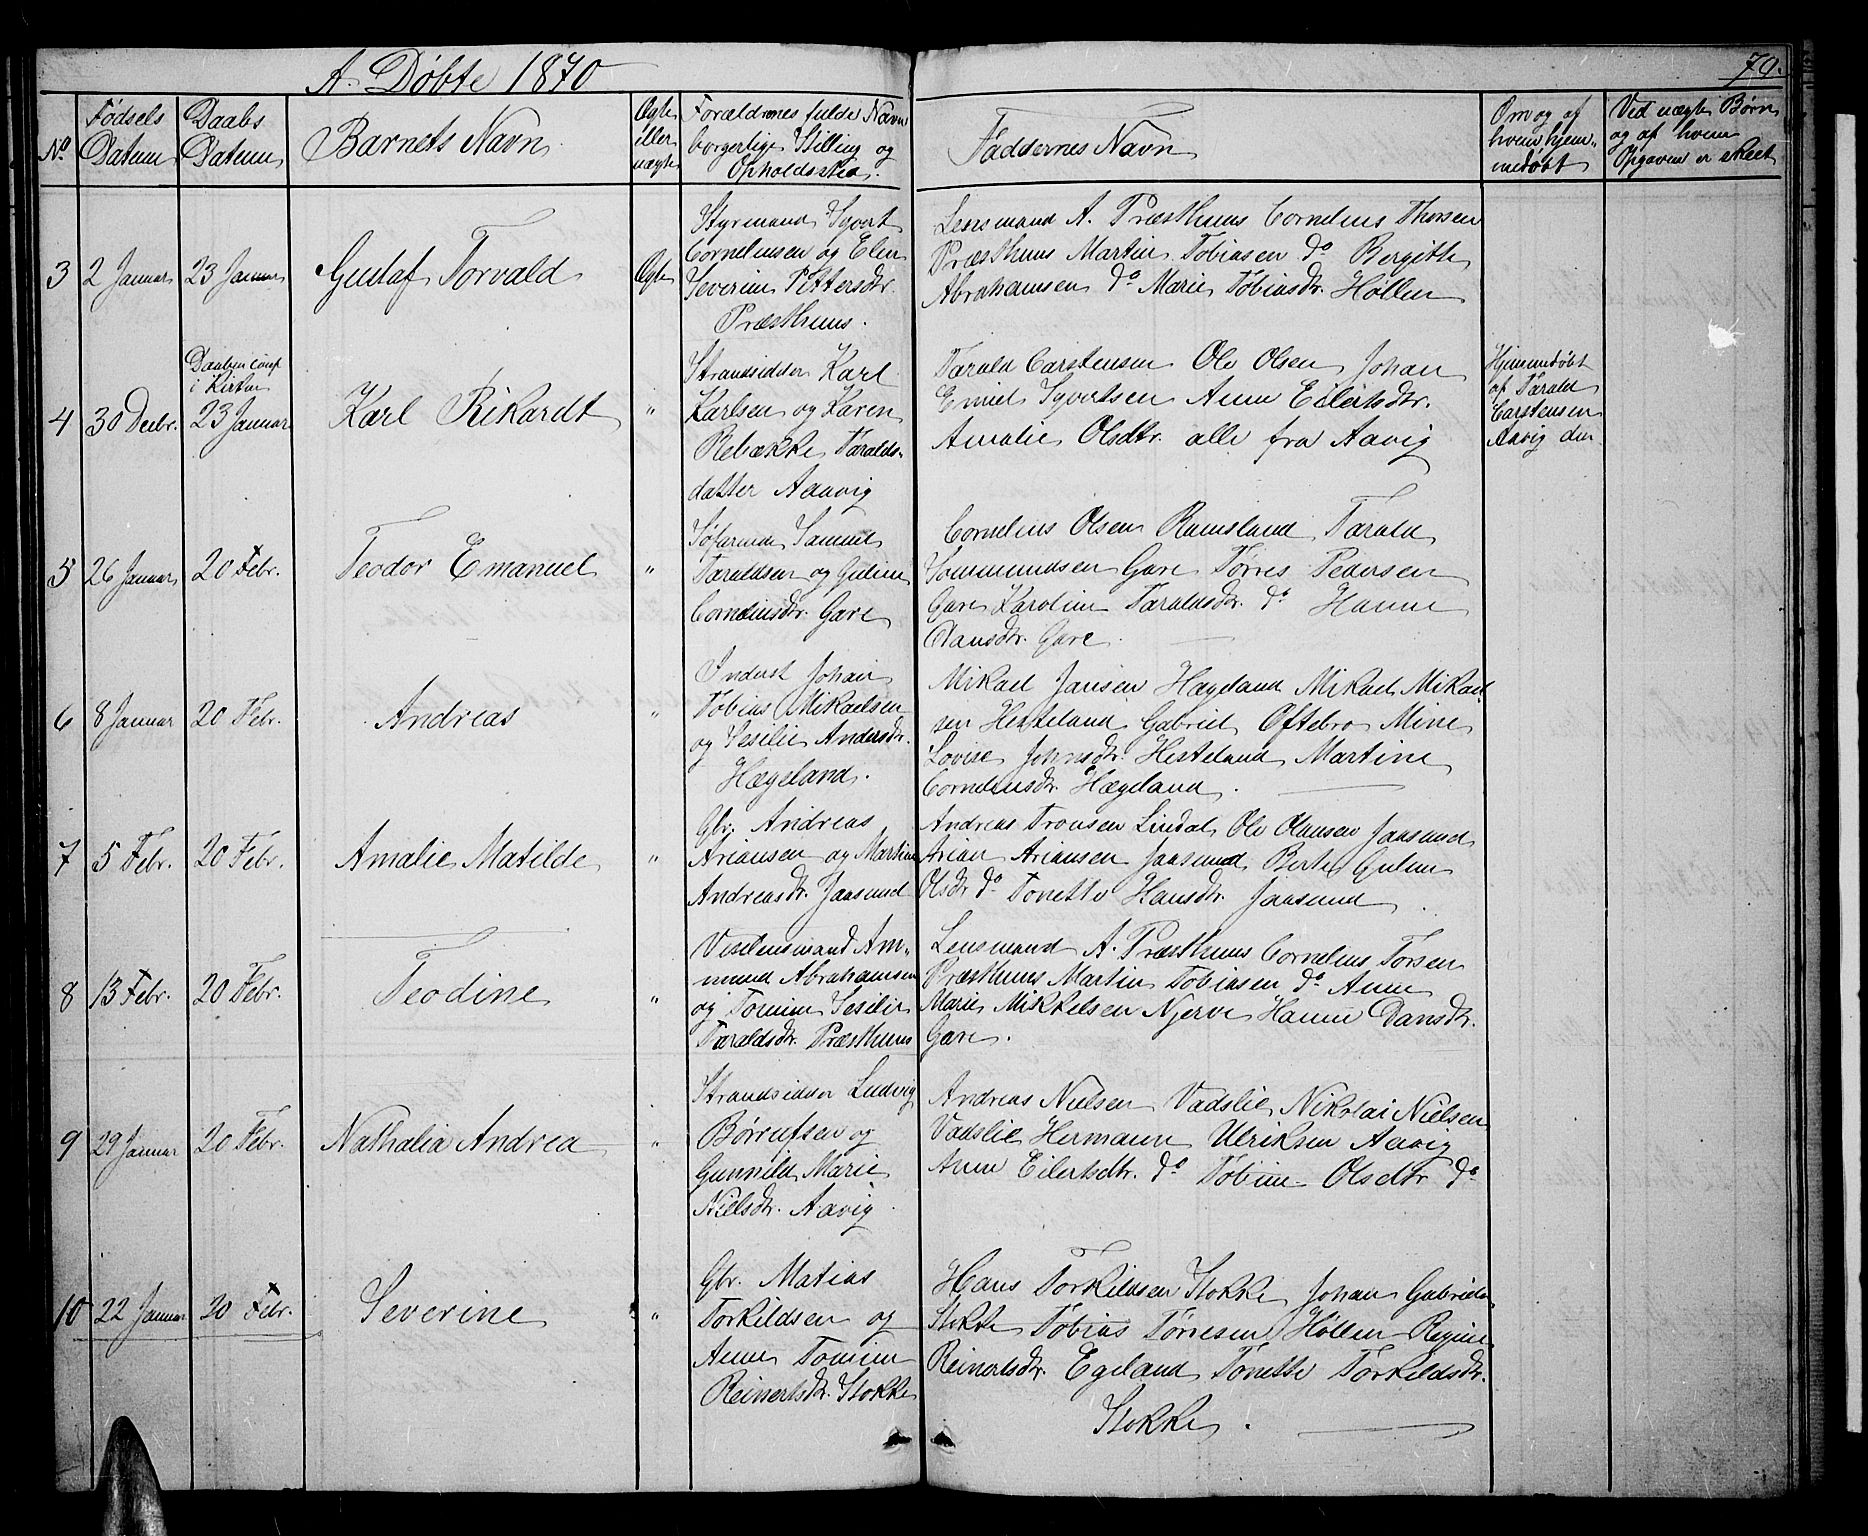 A. Døbte 1870
79.
No.
Fødsels Datum
Daabs Datum
Barnets Navn
Ægte eller uægte
Forældrenes fulde Navn
borgerlige Stilling og
Opholdssted.
Faddernes Navn
Om og af
hvem hjem-
medøbt
Ved uægte Børn
og af hvem
Opgaven er skeet
3 2 Januar 23 Januar Gustaf Torvald Ægte
Styrmand Syvert
Corneliusen og Elen
Severine Pettersdtr.
Præsthuus.
Lensmand A. Præsthuus Cornelius Thorsen
Præsthuus Martin Tobiasen do Bergithe
Abrahamsen do Marie Tobiasdtr. Høllen
4 30 Decbr. Daaben conf. i Kirken 23 Januar Karl Rikardt "
Strandsidder Karl
Karlsen og Karen
Rebække Taralds-
datter Aaavig
Tarald Carstensen Ole Olsen Johan
Emiel Syvertsen Anne Eilertsdtr.
Amalie Olsdtr. alle fra Aavig
Hjemmedøbt
af Tarald
Carstensen
Aavig den
5 26 Januar 20 Febr. Teodor Emanuel "
Søfarende Samuel
Taraldsen og Guline
Corneliusdtr. Gare
Cornelius Olsen Ramsland Tarald
Sommundsen Gare Tørres Pedersen
Gare Karoline Taraldsdtr. do Hanne
Clausdtr. Gare.
6 8 Januar 20 Febr. Andreas "
Inderst Johan
Tobias Mikaelsen
og Sesilie Andersdtr.
Hægeland.
Mikael Jansen Hægeland Mikael Mikael-
sen Hesteland Gabriel Oftebro Mine
Lovise Johnsdtr. Hesteland Martine
Corneliusdtr. Hægeland.
7 5 Febr. 20 Febr. Amalie Matilde "
Gbr. Andreas
Ariansen og Martine
Andreasdtr. Jaasund
Andreas Tronsen Lindal Ole Olausen Jaasund
Arian Ariansen Jaasund Berte Guline
Olsdtr do Tonette Hansdtr. Jaasund
8 13 Febr. 20 Febr. Teodine "
Vicelensmand Am-
mund Abrahamsen
og Tomine Sesilie
Taraldsdtr. Præsthuus
Lensmand A. Præsthuus Cornelius Torsen
Præsthuus Martin Tobiasen do Anne
Marie Mikkelsen Njerve Hanne Dansdtr.
Gare.
9 29 Januar 20 Febr. Nathalia Andrea "
Strandsidder Ludvig
Børrufsen og
Gunnild Marie
Nielsdtr. Aavig
Andreas Nielsen Vadslie Nikolai Nielsen
Vadslie Hermann Ulriksen Aavig
Anne Eilertsdtr. do Tobine Olsdtr do
10 22 Januar 20 Febr. Severine "
Gbr. Matias
Torkildsen og
Anne Tomine
Reinertsdtr. Stokke
Hans Torkildsen Stokke Johan Gabrielsen
Stokke Tobias Tørresen Høllen Regine
Reinertsdtr. Egeland Tonette Torkildsdtr.
Stokke.